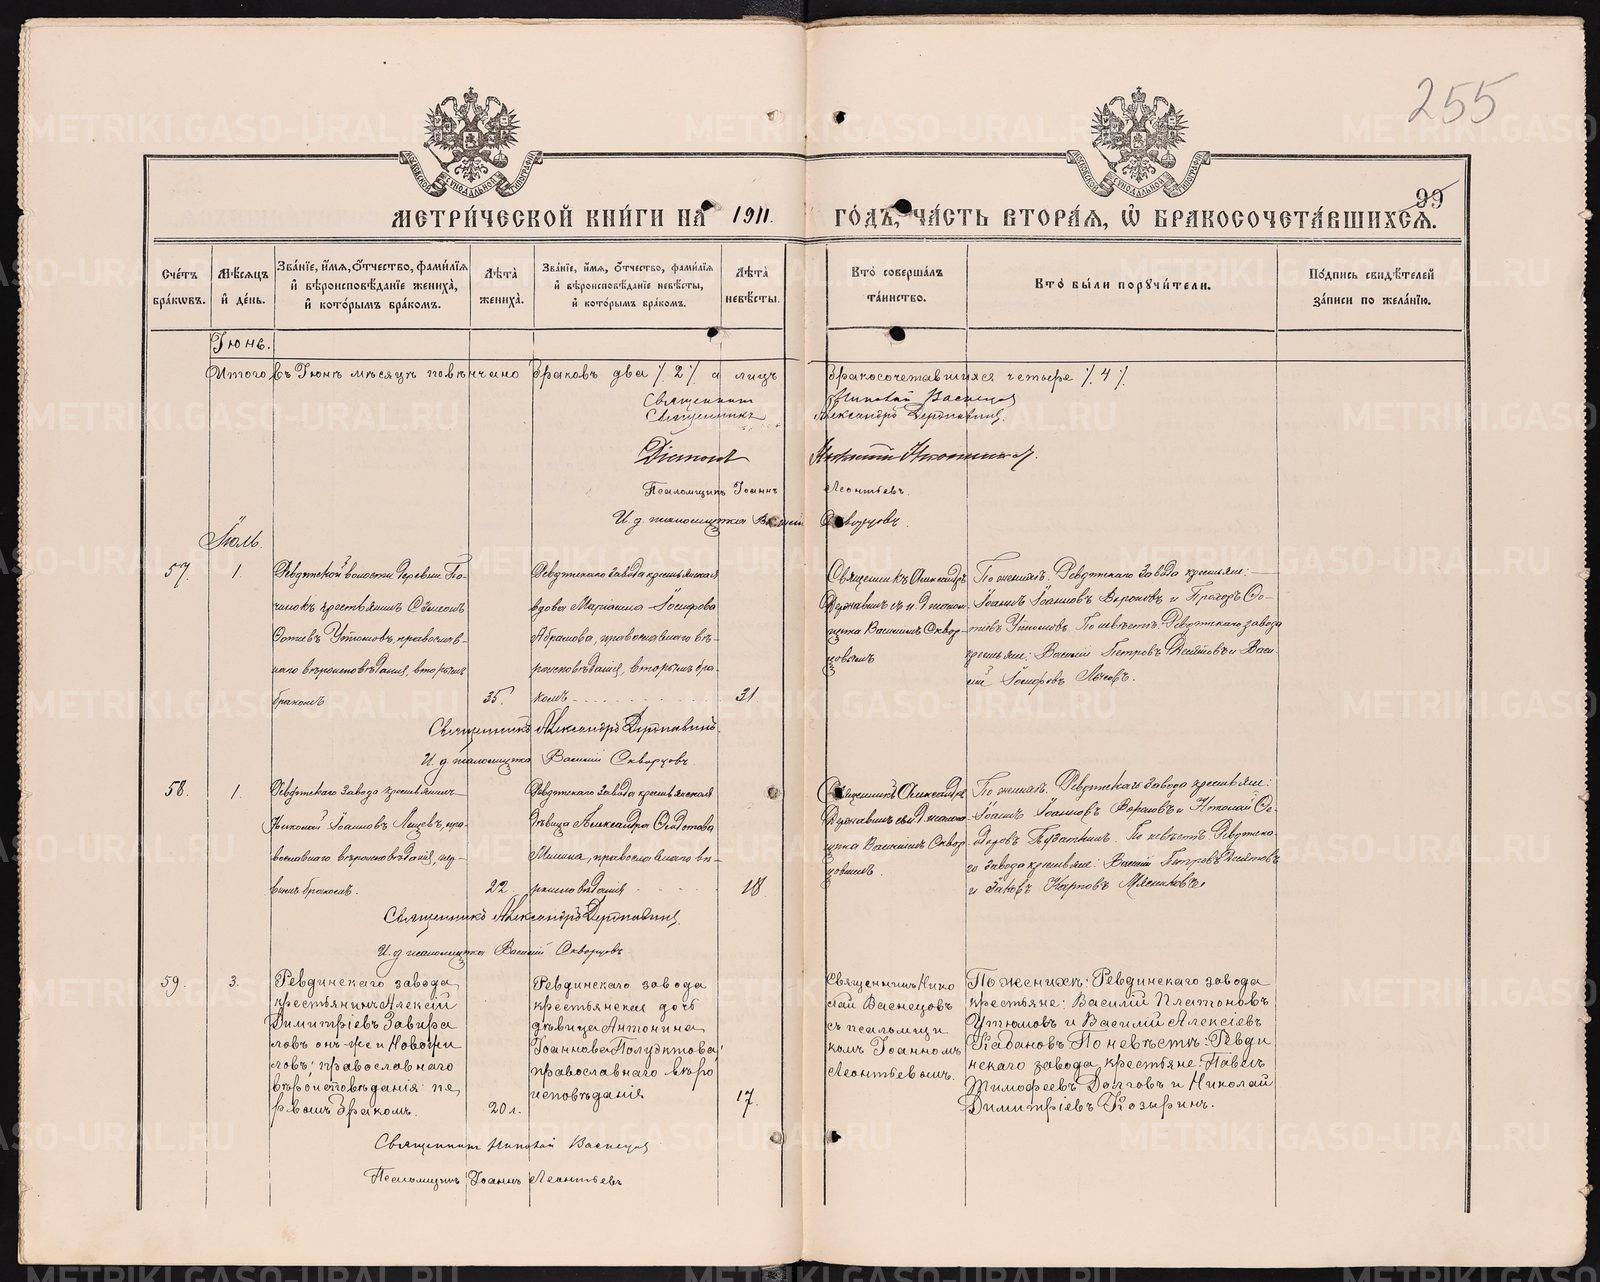 255
99
МОСКОВСКОЙ СѴНОДАЛЬНОЙ ТИПОГРАФІИ
МОСКОВСКОЙ СѴНОДАЛЬНОЙ ТИПОГРАФІИ
МЕТРИ́ЧЕСКОЙ КНИ́ГИ НА 1911. ГО́ДЪ, ЧА́СТЬ ВТОРА́Я, Ѡ҆ БРАКОСОЧЕТА́ВШИХСЯ.
Сче́тъ бра́ковъ.
Мѣ́сяцъ и҆ де́нь.
Зва́нїе, и҆́мя, ѻ҆́тчество, фами́лїя и҆ вѣроисповѣ́данїе жениха̀, и҆ кото́рымъ бра́комъ.
Лѣ́та жениха̀.
Зва́нїе, и҆́мя, ѻ҆́тчество, фами́лїя и҆ вѣроисповѣ́данїе невѣ́сты, и҆ кото́рымъ бра́комъ.
Лѣ́та невѣ́сты.
Кто̀ соверша́лъ та́инство.
Кто̀ бы́ли порꙋчи́тели.
По́дпись свидѣ́телей за́писи по жела́нїю.
Іюнь.
Итого въ Іюнѣ мѣсяцѣ повѣнчано браковъ два /. 2 /. а лицъ бракосочетавшихся четыре /. 4 /.
Священникъ Николай Васнецов
Священникъ Александръ Державинъ
Псаломщикъ Іоаннъ Леонтьевъ.
И. д. псаломщика Василій Скворцовъ.
Іюль.
57. 1.
Ревдинской волости деревни По-
чинокъ крестьянинъ Сѵмеонъ
Утюмовъ, православ-
наго вѣроисповѣданія, вторымъ
бракомъ
35.
Ревдинскаго завода крестьянская
вдова Маріанна Іосифова
Абрамова, православнаго вѣ-
роисповѣданія, вторымъ бра-
комъ
31.
Священникъ Александръ
Державинъ съ и. д. псалом-
щика Василіемъ Сквор-
цовымъ
По женихѣ: Ревдинскаго завода крестьяне:
Іоаннъ Іоанновъ и Прохоръ Фо-
тіевъ Утюмовъ. По невѣстѣ: Ревдинскаго завода
крестьяне: Василій Петровъ и Васи-
лій Іосифовъ
Священникъ Александръ Державинъ.
И. д. псаломщика Василій Скворцовъ
58. 1.
Ревдинскаго завода крестьянинъ
Николай Іоанновъ пра-
вославнаго вѣроисповѣданія, пер-
вымъ бракомъ.
22
Ревдинскаго завода крестьянская
дѣвица Александра Ѳедотова
православнаго вѣ-
роисповѣданія
18
Священникъ Александръ
Державинъ съ и. д. псалом-
щика Василіемъ Сквор-
цовымъ.
По женихѣ: Ревдинскаго завода крестьяне:
Іоаннъ Іоанновъ и Николай
По невѣстѣ: Ревдинска-
го завода крестьяне: Василій Петровъ
и Іаковъ Карповъ Мясниковъ.
Священникъ Александръ Державинъ.
И. д. псаломщика Василій Скворцовъ
59. 3.
Ревдинскаго завода
крестьянинъ Алексій
Димитріевъ Завира
ловъ онъ-же и Новожи
ловъ; православнаго
вѣроисповѣданія: пе
рвымъ бракомъ.
20 л.
Ревдинскаго завода
крестьянская дочь
дѣвица Антонина
Іоаннова Полуэктова;
православнаго вѣро
исповѣданія
17.
Священникъ Нико
лай Васнецовъ
съ псаломщи
комъ Іоанномъ
Леонтьевымъ.
По женихѣ: Ревдинскаго завода
крестьяне: Василій Платоновъ
Утюмовъ и Василій Алексіевъ
Кабановъ По невѣстѣ: Ревди
нскаго завода крестьяне: Павелъ
Тимофеевъ Долговъ и Николай
Димитріевъ Козыринъ.
Священникъ Николай Васнецов
Псаломщикъ Іоаннъ Леонтьевъ
METRIKI.GASO-URAL.RU